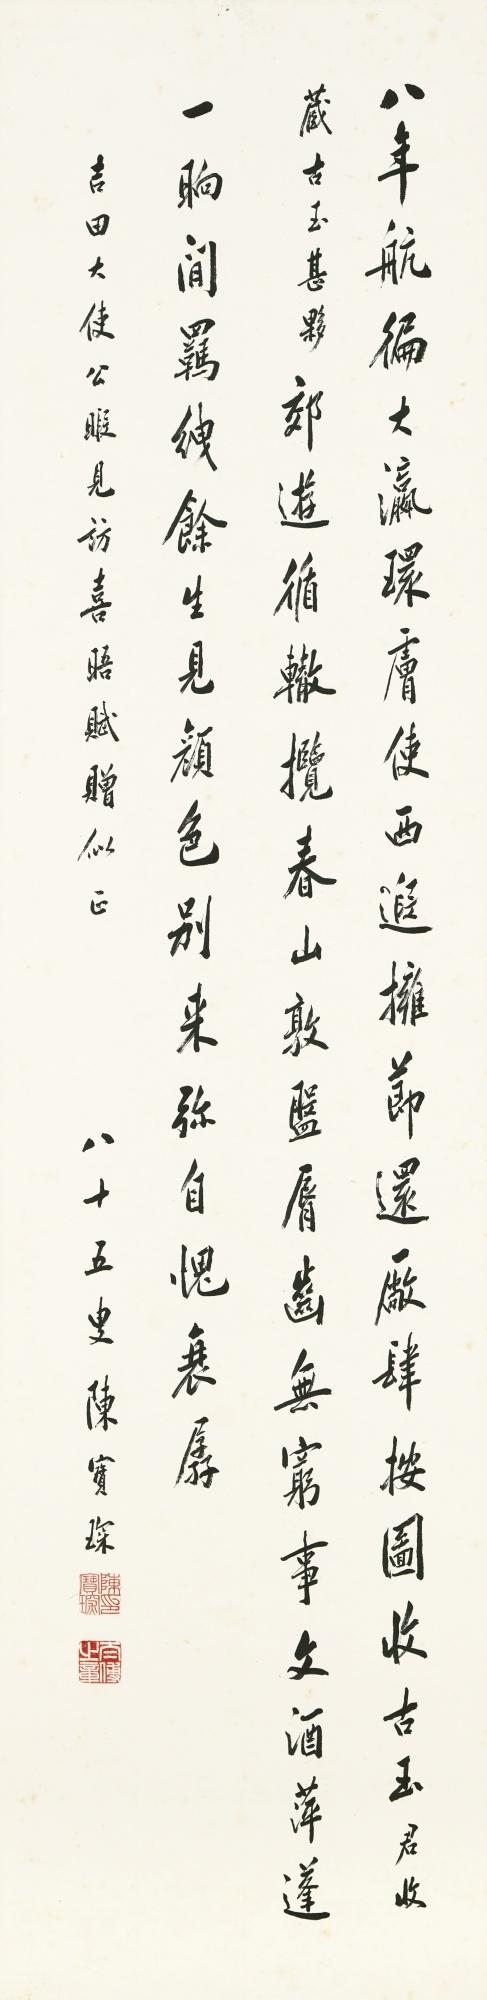 八年航徧大瀛環膚使西遊擁節還廠肆按圖收古玉君收
藏古玉甚夥郊遊循轍攬春山敦盤脣齒無窮事文酒萍蓬
一晌間羈絏餘生見顔色別来弥自愧衰孱
吉田大使公暇見訪喜晤賦贈似正
八十五叟陳寶琛
陳印寶琛
太傅之章